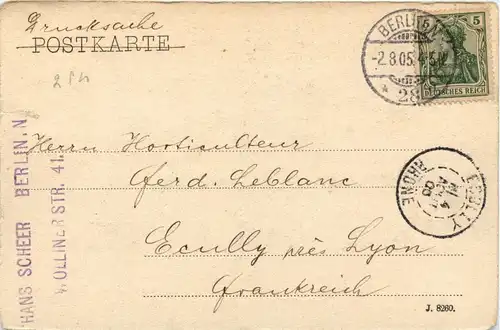 Drucksache
POSTKARTE
BERLIN
-2.8.05.4-5N
* 28
5
DEUTSCHES REICH
Herrn Horticulteur
Ferd. Leblanc
Ecully près Lyon
Frankreich
HANS SCHEER BERLIN. N
STR. 41.
ECULLY
4
AOUT
RHONE
J. 8260.